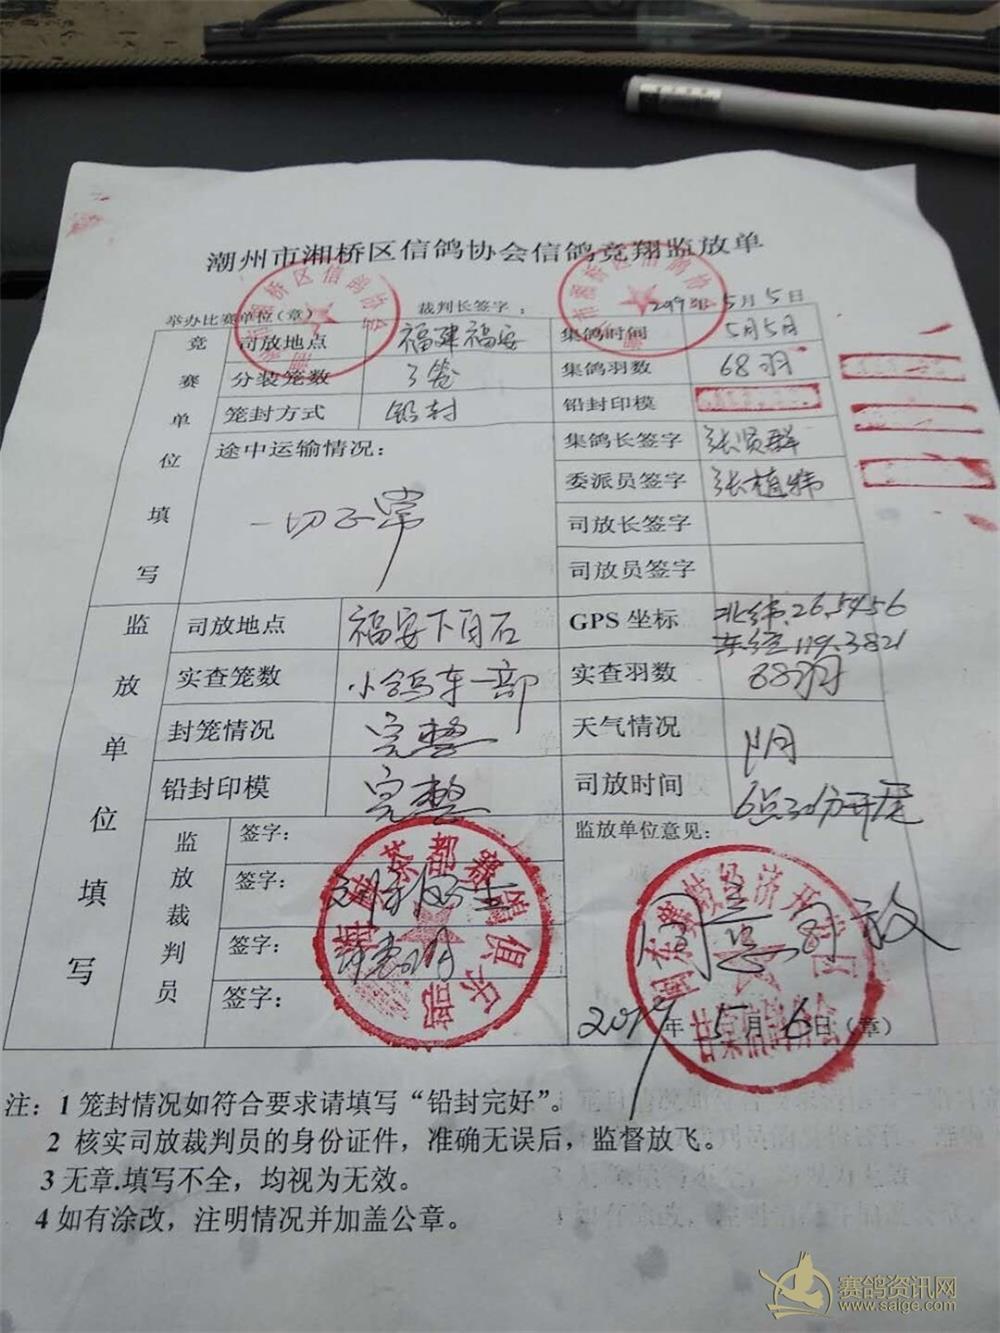 潮州市湘桥区信鸽协会信鸽竞翔监放单
举办比赛单位(章) 裁判长签字： 2019年5月5日
竞赛单位填写
司放地点 福建福安 集鸽时间 5月5日
分装笼数 3笼 集鸽羽数 68羽
笼封方式 铅封 铅封印模
途中运输情况： 集鸽长签字 张贤群
一切正常 委派员签字 张植炜
司放长签字
司放员签字
监放单位填写
司放地点 福安下白石 GPS 坐标 北纬.26.5456
东经119.3821
实查笼数 小鸽车一部 实查羽数 68羽
封笼情况 完整 天气情况 阴
铅封印模 完整 司放时间 6点30分开笼
监放裁判员
签字： 监放单位意见：
签字：
签字：
签字：
同意司放
2019年5月6日（章）
茶都赛鸽俱乐部
经济开发区
甘棠信鸽分会
桥区信鸽协会
注：1 笼封情况如符合要求请填写“铅封完好”。
2 核实司放裁判员的身份证件，准确无误后，监督放飞。
3 无章.填写不全，均视为无效。
4 如有涂改，注明情况并加盖公章。
赛鸽资讯网
www.saige.com